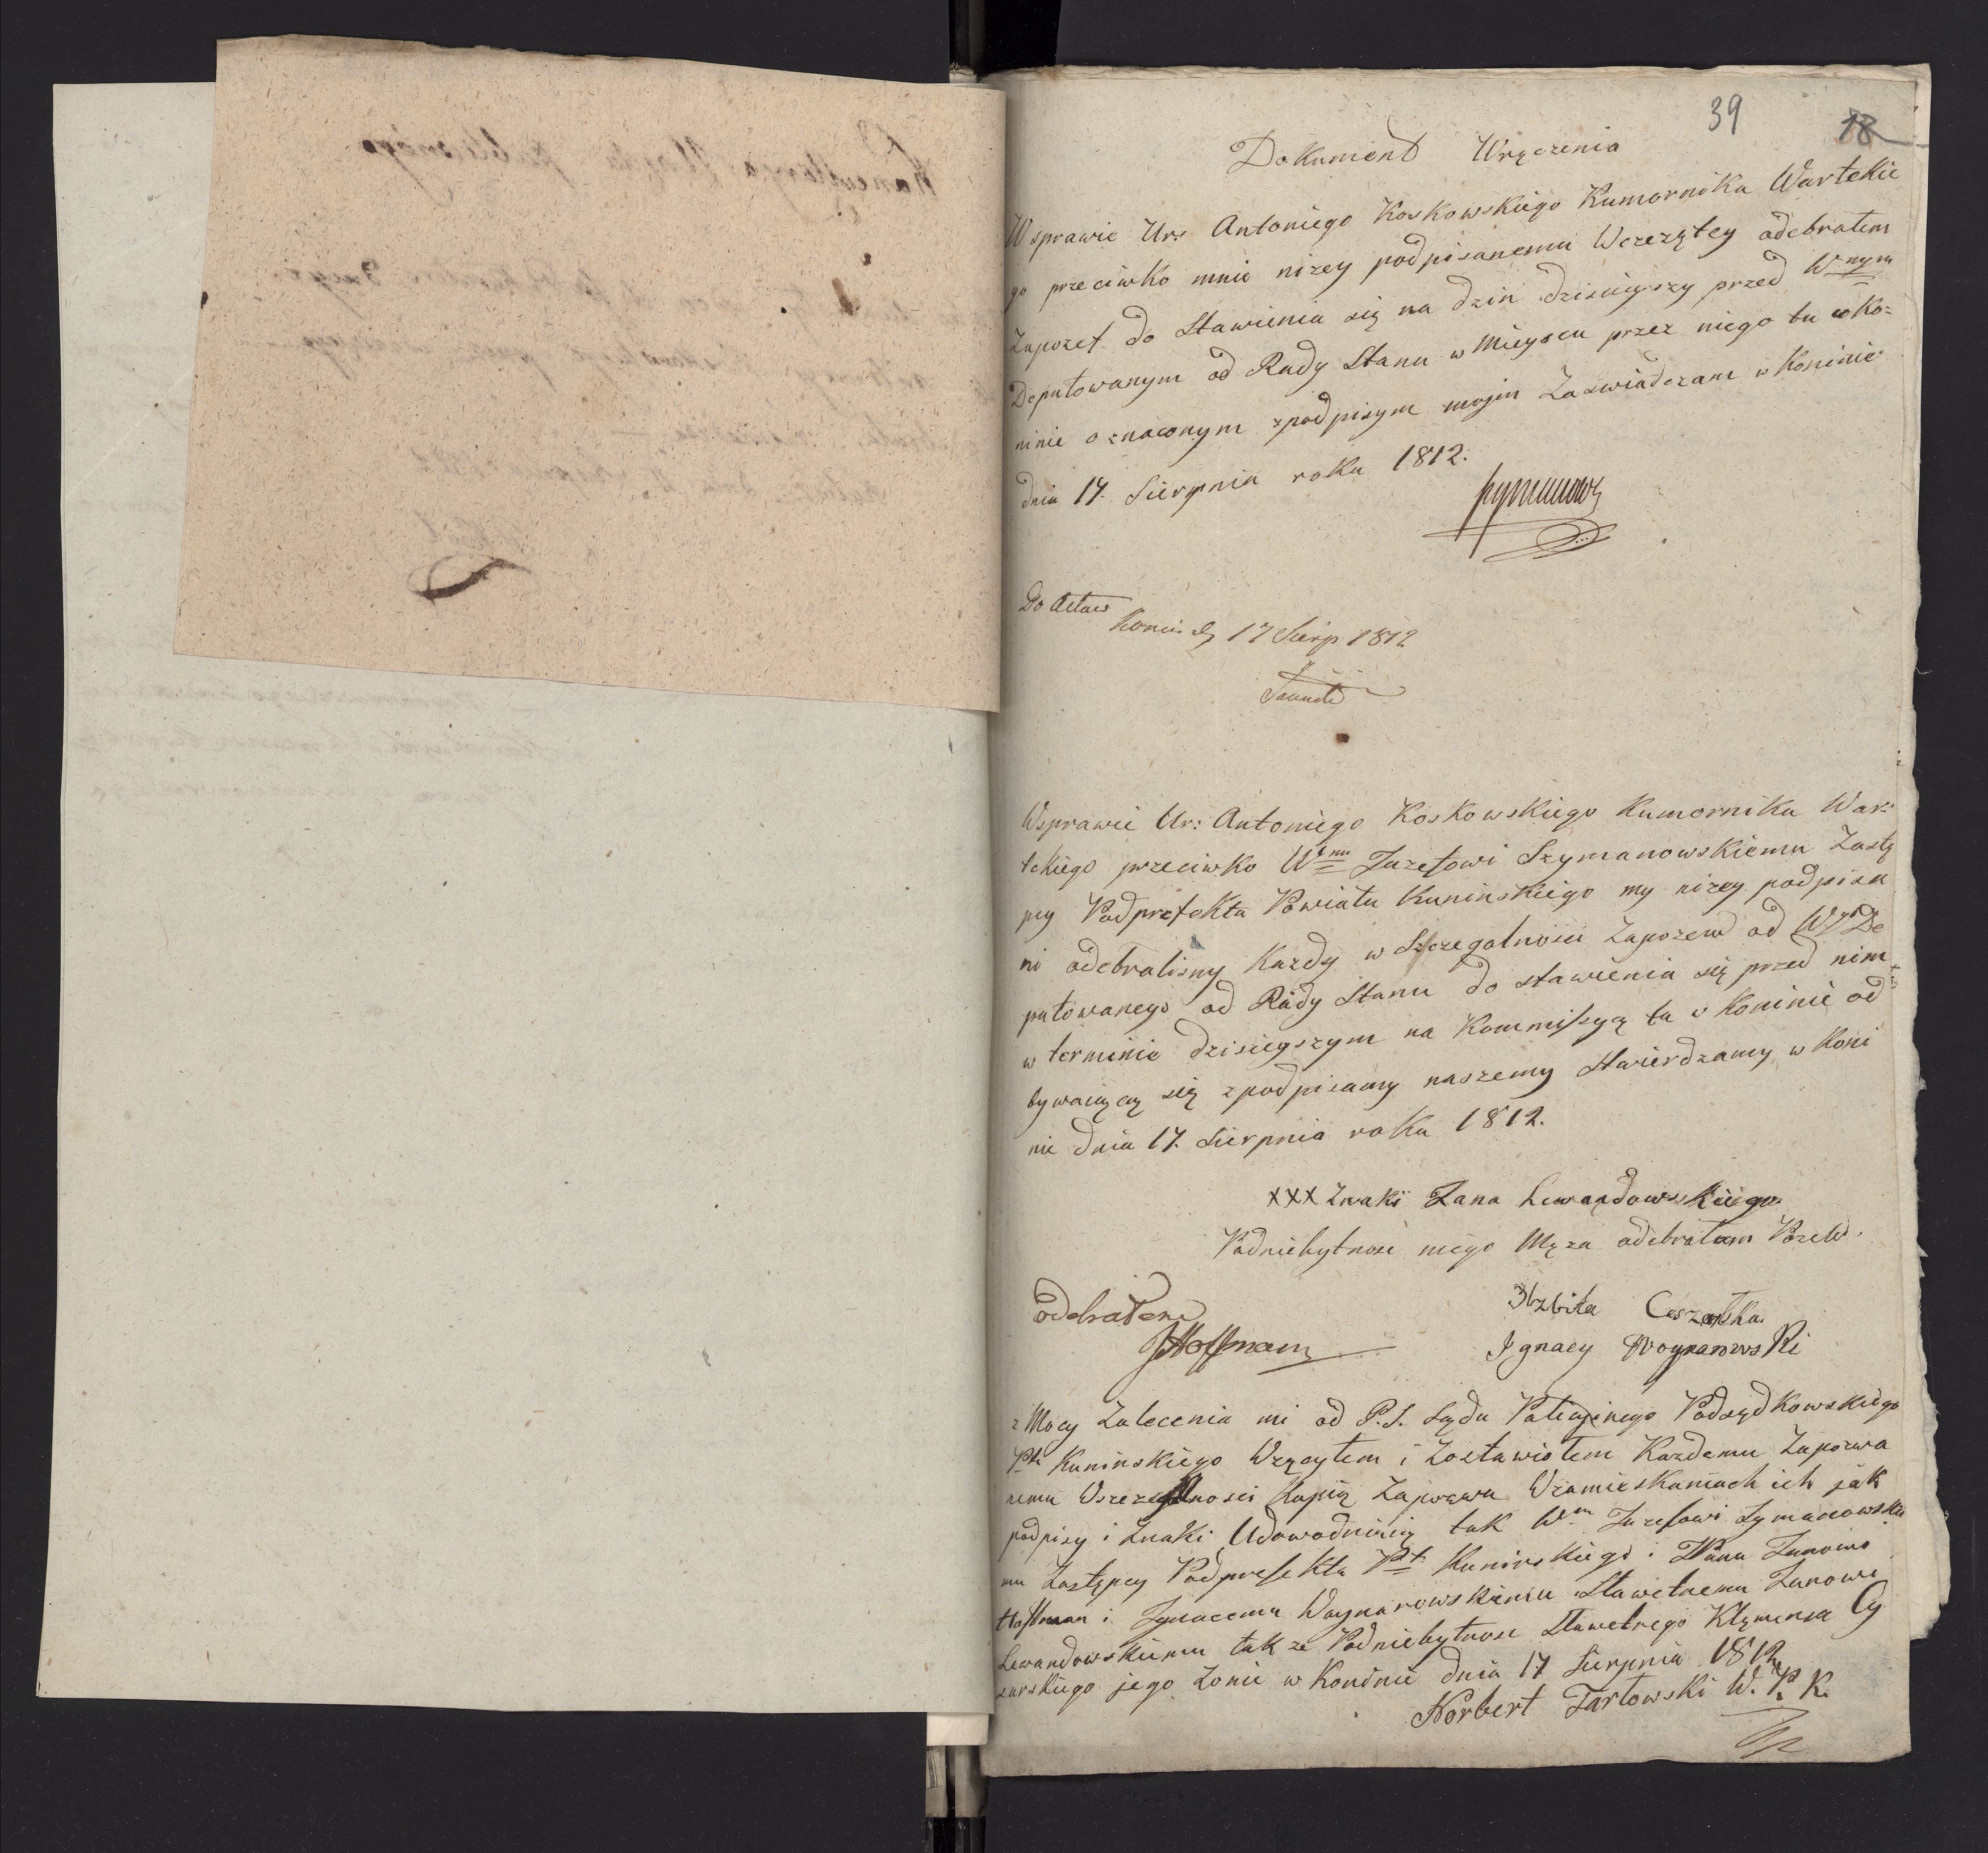 39
18
Dokument Wręczenia
W sprawie Ur: Antoniego Koskowskiego Kumornika Wartskie
go przeciwko mnie niżey podpisanemu Wczezętey odebratem
Zapozef do Stawienia się na dzin dzisieyszy przed W=nym
Deputowanym od Rady Stanu w Mieyscu przez niego tu w Ko=
ninie oznaconym z podpisym mojm Zaswiadczam w Koninie
dnia 17. Sierpnia roku 1812.
Szymanows
Do Actow
Konin d 17 Sierp 1812
Wsprawie Ur: Antoniego Koskowskiego Kumornika War=
tskiego przeciwko W=mu Juzefowi Szymanowskiemu Zastę
pcy Podprefekta Powiatu Kuninskiego my nizey podpisa
ni odebralismy Kazdy w Szczegolnosci Zapozew od WgoDe
putowanego od Rady Stanu do stawienia się przed nim
w terminie dzisieyszym na Kommissyą tu w Koninie od
bywaiącą się z podpisamy naszemy Stwierdzamy w Koni
nie dnia 17. Sierpnia roku 1812.
XXX Znaki Jana Lewandowskiego
Podniebytnosc mego Męza odebratam Pozew.
odebratem
JHoffmann
Elzbita Ceszarska
Ignacy Woynarowski
z Mocy Zalecenia mi od P.S. Sądu Policyinego Podsędkowskiego
Ptu Kuninskiego Wręcytem i Zostawiotem Kazdemu Zapozwa
nemu Wszczegulnosci Kopią Zapozwu Wzamieskaniach ich jak
podpisy i Znaki Udowodniaią tak Wmu Juzefowi Szymanowskie
mu Zastępcy Podprefekta Ptu Kuninskiego i Panu Janowi
Hoffman i Jgnacemu Woynarowskiemu Stawetnemu Janowi
Lewandowskiemu takze Podniebytnosc Stawetnego Klymensa Cy
zarskiego jego Zonie w Koninie dnia 17 Sierpnia 1812
Norbert Tartowski W. P. K.